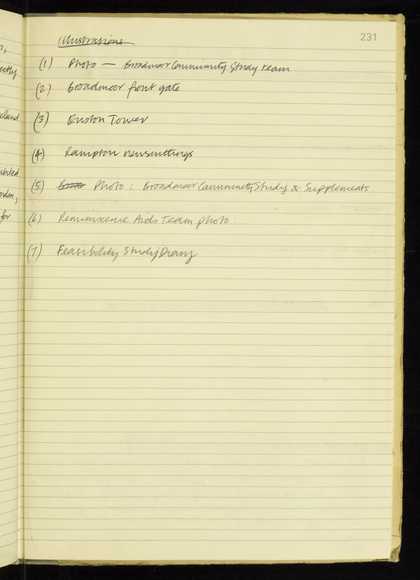 231
Illustrations
(1) Photo — Broadmoor Community Study Team
(2) Broadmoor front gate
(3) Euston Tower
(4) Rampton newscuttings
(5) Photo : Broadmoor Community Study & Supplements
(6) Reminiscence Aids Team photo
(7) Feasibility Study Diary